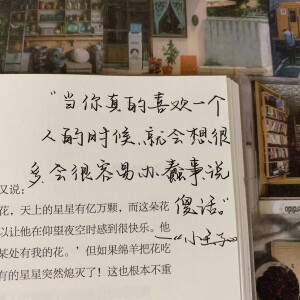 “当你真的喜欢一个
人的时候,就会想很
多,会很容易办蠢事、说
傻话。”
——“小王子”
又说:
花,天上的星星有亿万颗,而这朵花
以让他在仰望夜空时感到很快乐。他
某处有我的花。’但如果绵羊把花吃
有的星星突然熄灭了!这也根本不重